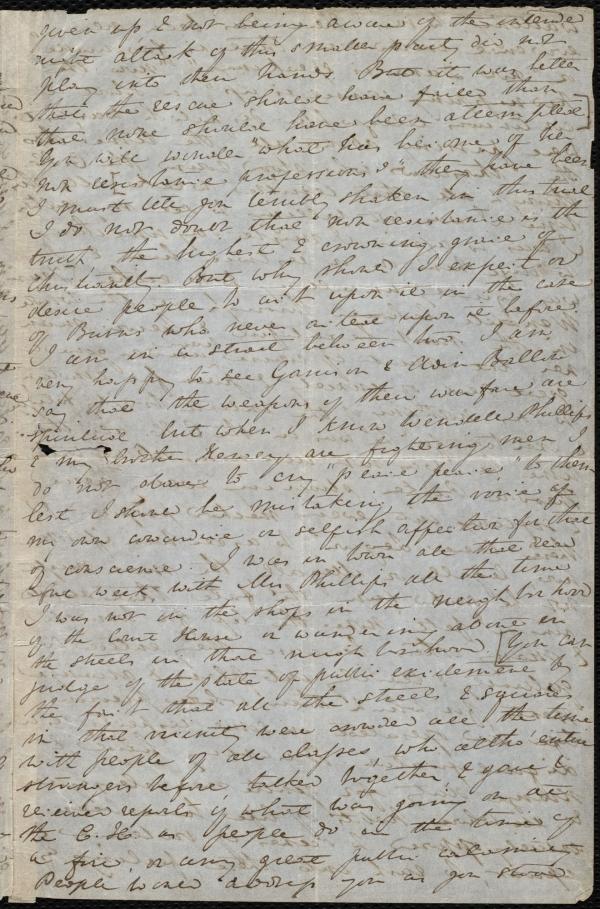 given up & not being aware of the intended
night attack of this smaller party did not
play into their hands. But it was better
that the rescue should have failed than
that none should have been attempted]
You will wonder "what has become of the
non resistance professions?" they have been
I must tell you terribly shaken in this trial
I do not doubt that non resistance is the
truth the highest & crowning grace of
Christianity. But why should I expect or
desire people to act upon it in the case
of Burns who never acted upon it before
I am in a strait between two. I am
very happy to see Garrison & Adin Ballou
say that the weapons of their warfare are
spiritual but when I know Wendell Phillips
& my brother Hervey are fighting men I
do not dare to cry "peace peace" to them
lest I should be mistaking the voice of
my own cowardice or selfish affection for that
of conscience. I was in town all that
week with Mrs Phillips all the time
I was not in the shops in the neighborhood
of the Court House or wandering alone in
the streets in that neighborhood [You can
judge of the state of public excitement by
the fact that all the streets & squares
in that vicinity were crowded all the time
with people of all classes, who altho' entire
strangers before talked together & gave &
received reports of what was going on at
the C. H. as people do in the time of
a fire, or any great public calamity
People would address you as you stood